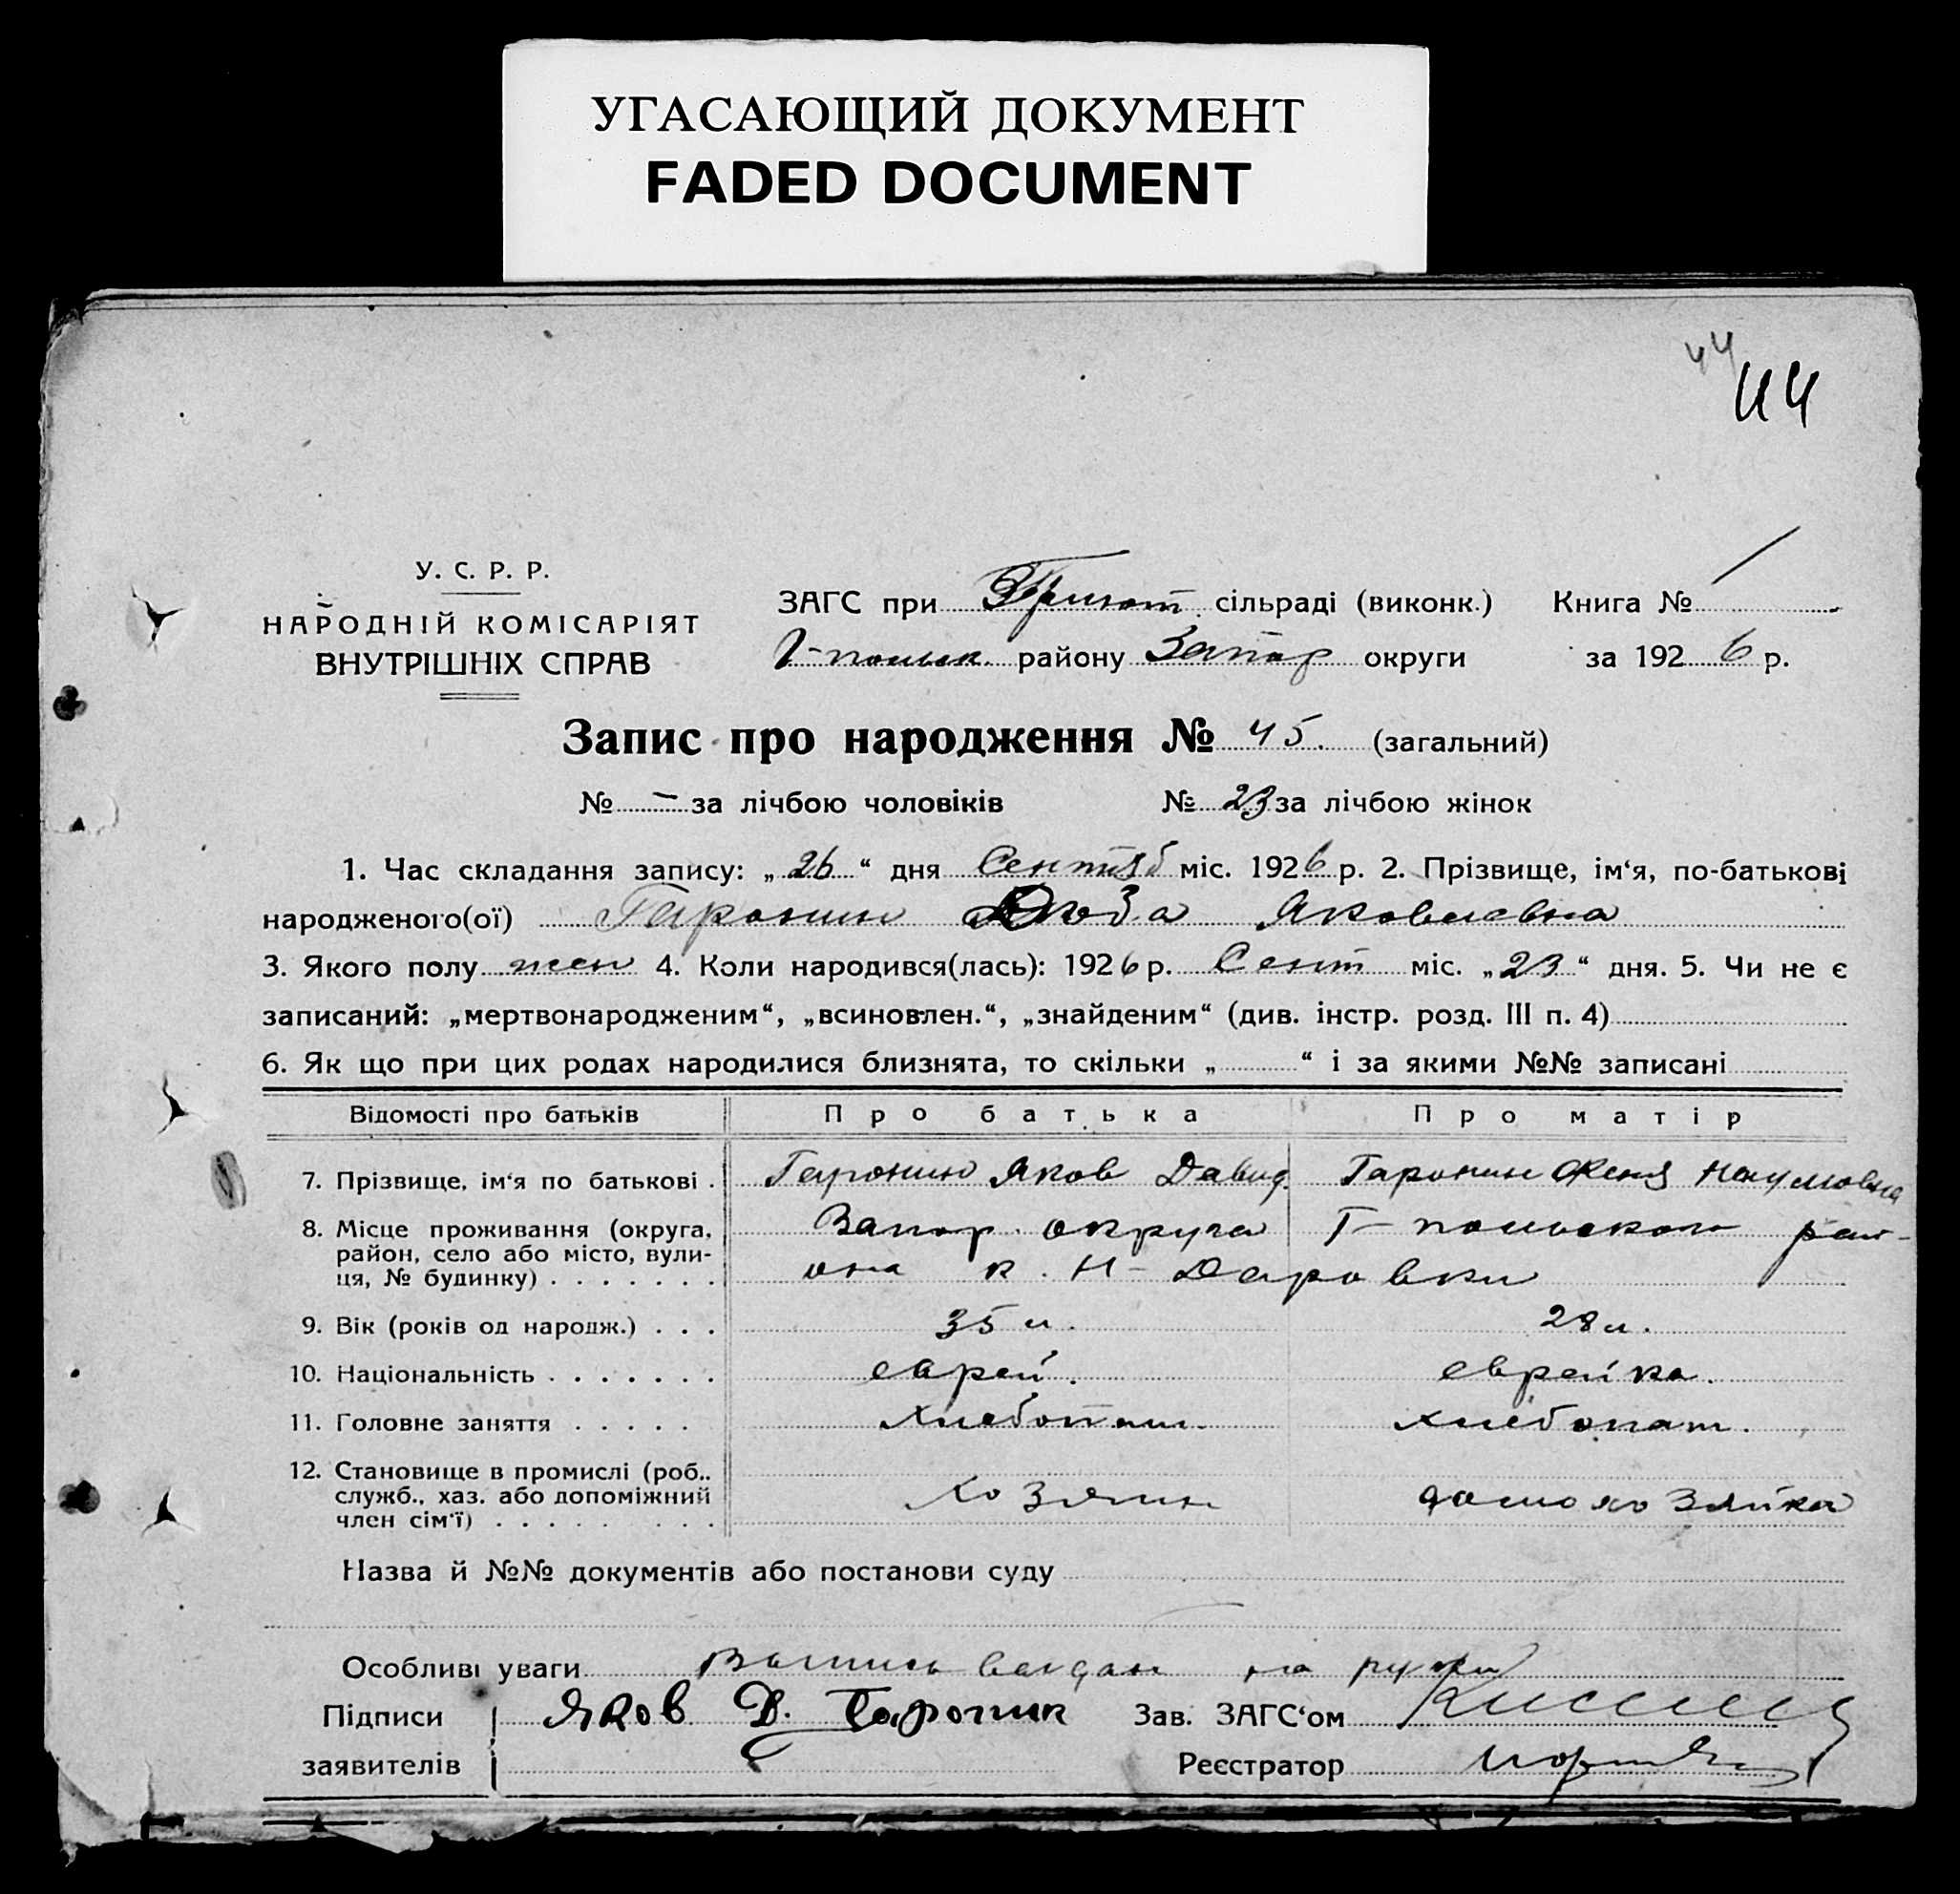 УГАСАЮЩИЙ ДОКУМЕНТ
FADED DOCUMENT
44
44
У. С. Р. Р.
НАРОДНІЙ КОМІСАРІЯТ
ВНУТРІШНІХ СПРАВ
ЗАГС при сільраді (виконк.) Книга № 1
району Запор округи за 1926 р.
Запис про народження № 45. (загальний)
№ — за лічбою чоловіків № 23 за лічбою жінок
1. Час складання запису: „26“ дня Сентяб міс. 1926 р. 2. Прізвище, ім‘я, по-батькові
народженого(ої) Гаронин Роза Яковлевна
3. Якого полу жен 4. Коли народився(лась): 1926 р. Сент міс. „23“ дня. 5. Чи не є
записаний: „мертвонародженим“, „всиновлен.“, „знайденим“ (див. інстр. розд. III п. 4)
6. Як що при цих родах народилися близнята, то скільки „ “ і за якими №№ записані
Відомості про батьків Про батька Про матір
7. Прізвище, ім‘я по батькові . Гаронин Яков Давид. Гаронин Женя Наумовна
8. Місце проживання (округа, Запор. округа Г-польского рай-
район, село або місто, вули-
ця, № будинку) . . . . . . . она к. Н-Даровки
9. Вік (років од народж.) . . . 35 л. 28 л.
10. Національність . . . . . . . еврей. еврейка.
11. Головне заняття . . . . . хлебопаш. хлебопаш.
12. Становище в промислі (роб.. хозяин домохозяйка
служб., хаз. або допоміжний
член сім‘ї) . . . . . . . . .
Назва й №№ документів або постанови суду
Особливі уваги на руки
Підписи Яков Д. Гаронин Зав. ЗАГС‘ом
заявителів Реєстратор